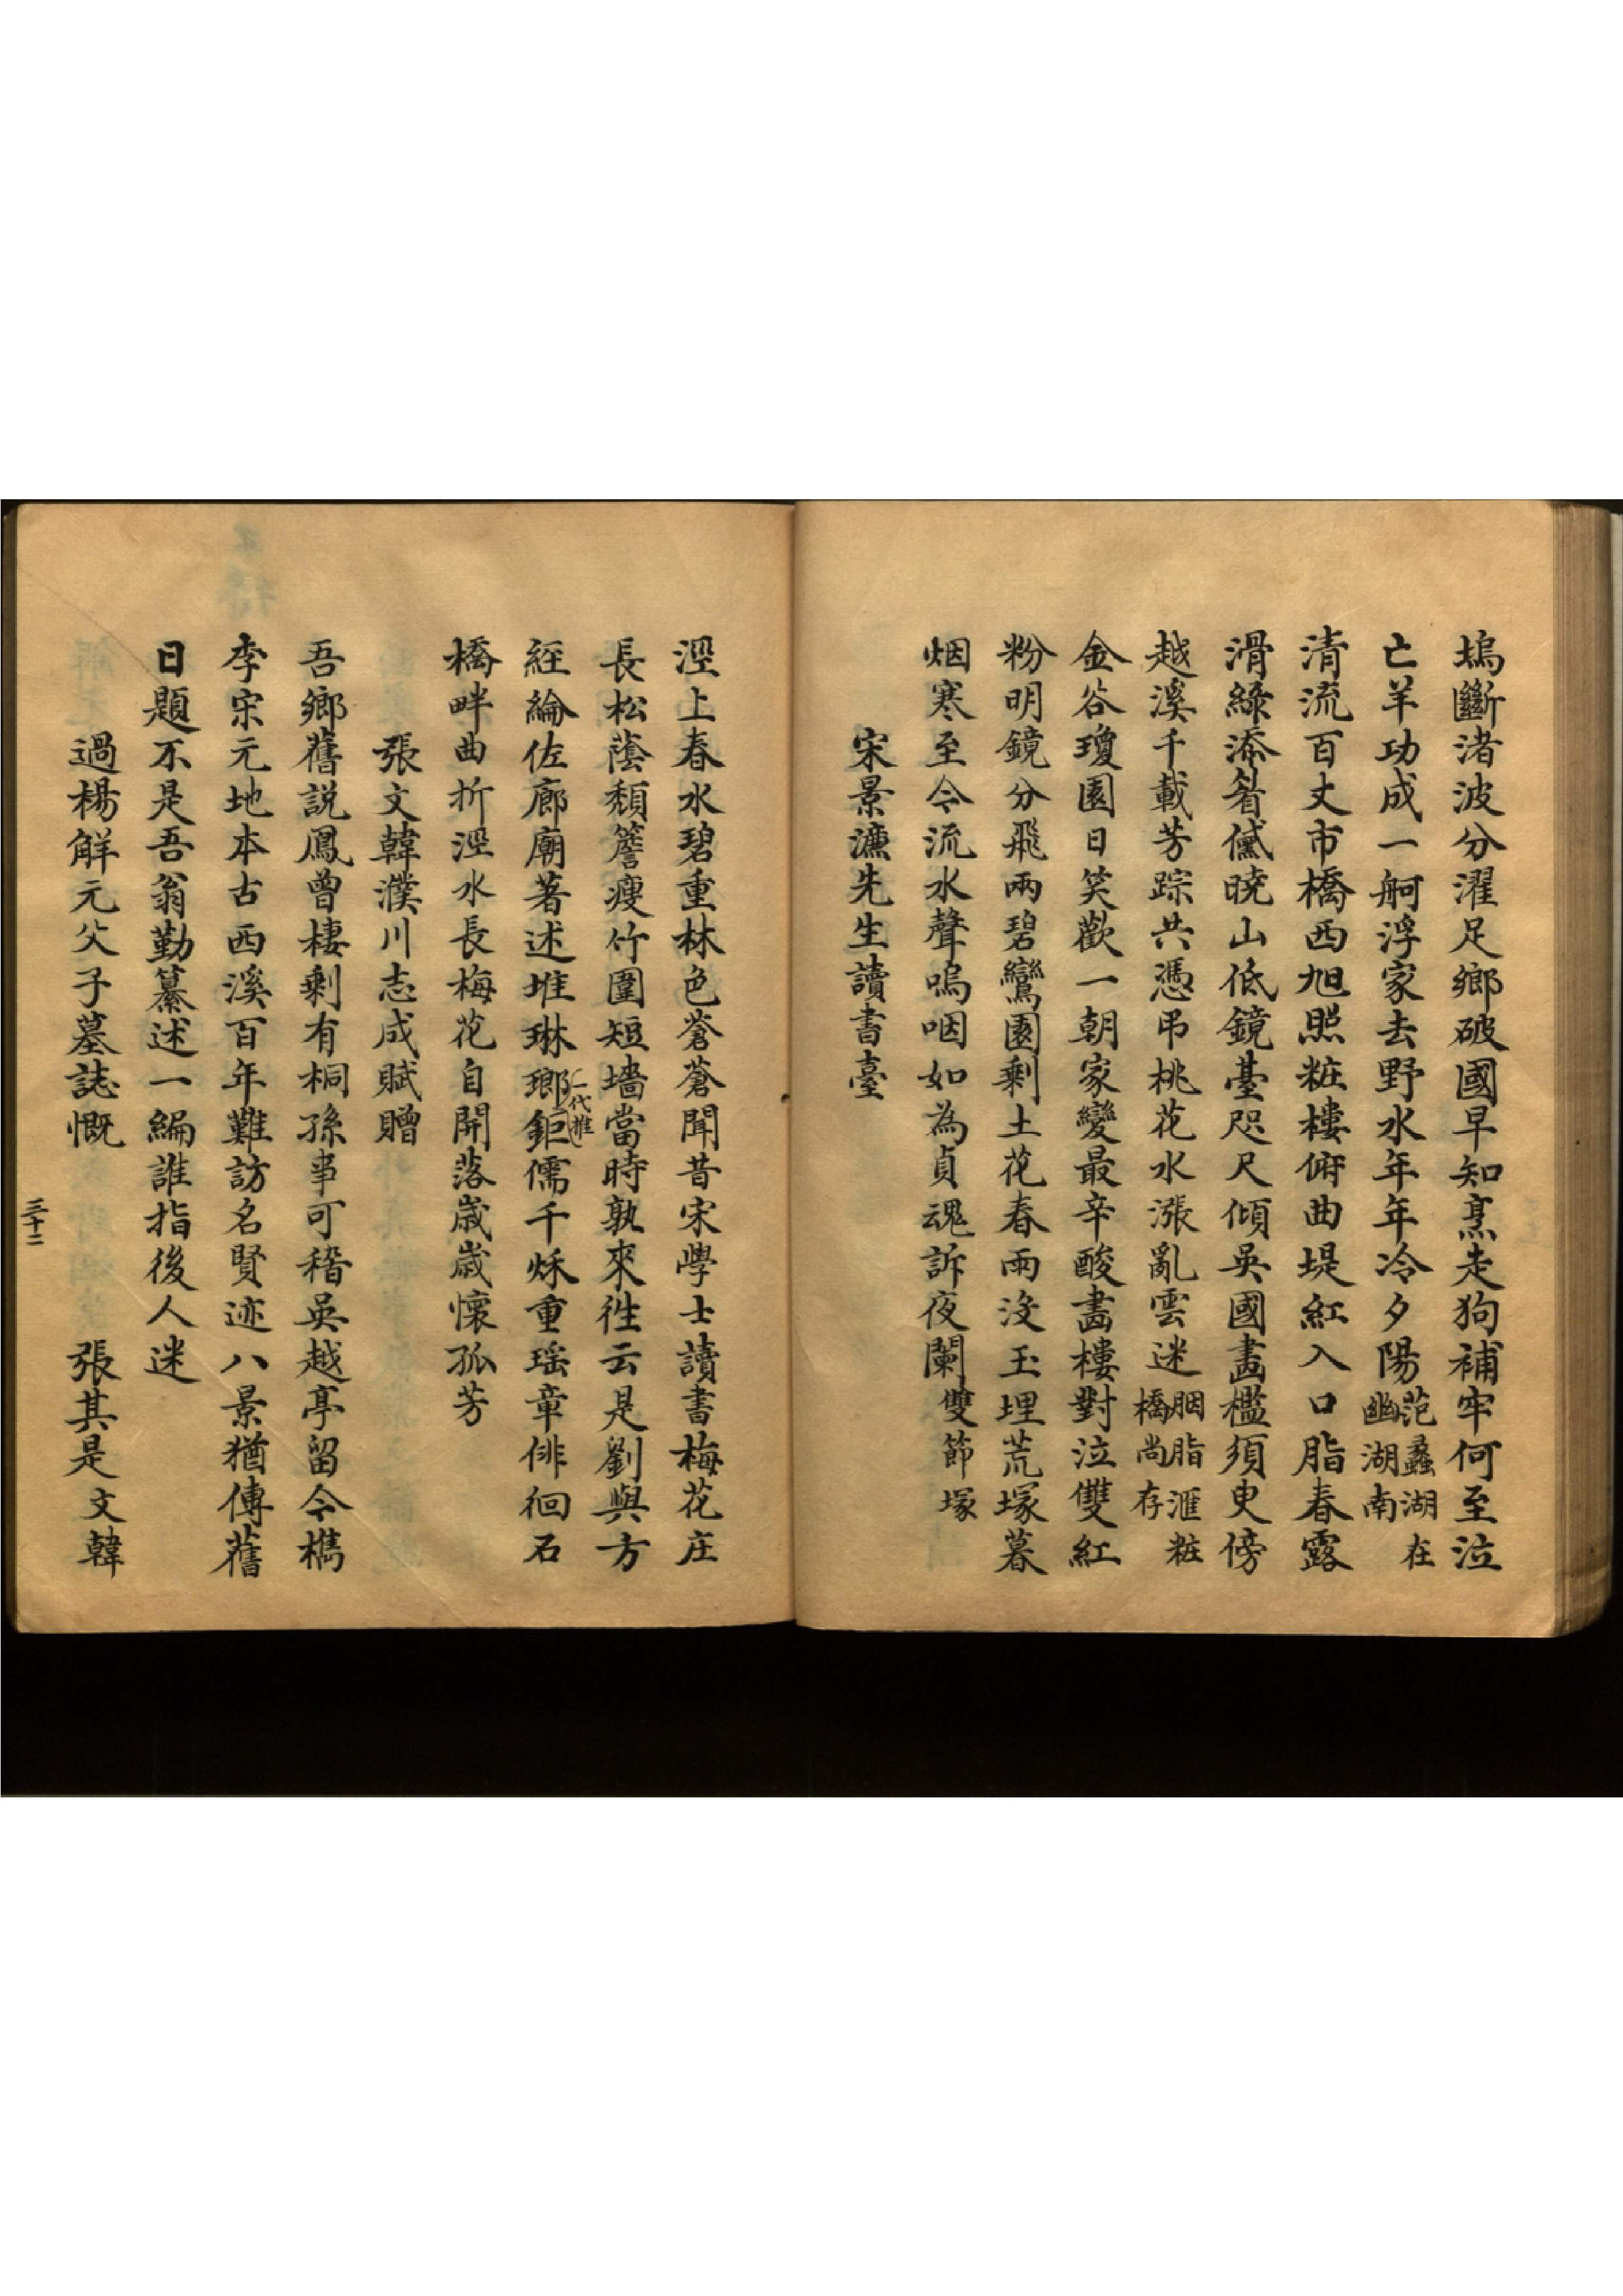 塢斷渚波分濯足鄉破國早知烹走狗補牢何至泣
亡羊功成一舸浮家去野水年年冷夕陽范蠡湖在幽湖南
清流百丈市橋西旭照粧樓俯曲堤紅入口脂春露
滑綠添眉黛曉山低鏡臺咫尺傾吳國畵檻須臾傍
越溪千載芳踪共憑吊桃花水漲亂雲迷胭脂滙粧橋尚存
金谷瓊園日笑歡一朝家變最辛酸畵樓對泣雙紅
粉明鏡分飛兩碧鸞園剩土花春雨沒玉埋荒塚暮
烟寒至今流水聲嗚咽如為貞魂訴夜闌雙節塚
宋景濂先生讀書臺
涇上春水碧重林色蒼蒼聞昔宋學士讀書梅花庄
長松蔭頹簷瘦竹圍短墻當時孰來徃云是劉與方
經綸佐廊廟著述堆琳瑯鉅儒千秌重瑶章俳徊石
一代推
橋畔曲折涇水長梅花自開落歲歲懷孤芳
張文韓濮川志成賦贈
吾鄉舊説鳳曾棲剩有桐孫事可稽吳越亭留今檇
李宋元地本古西溪百年難訪名賢迹八景猶傳舊
日題不是吾翁勤纂述一編誰指後人迷
過楊解元父子墓誌慨
張其是文韓
三十二